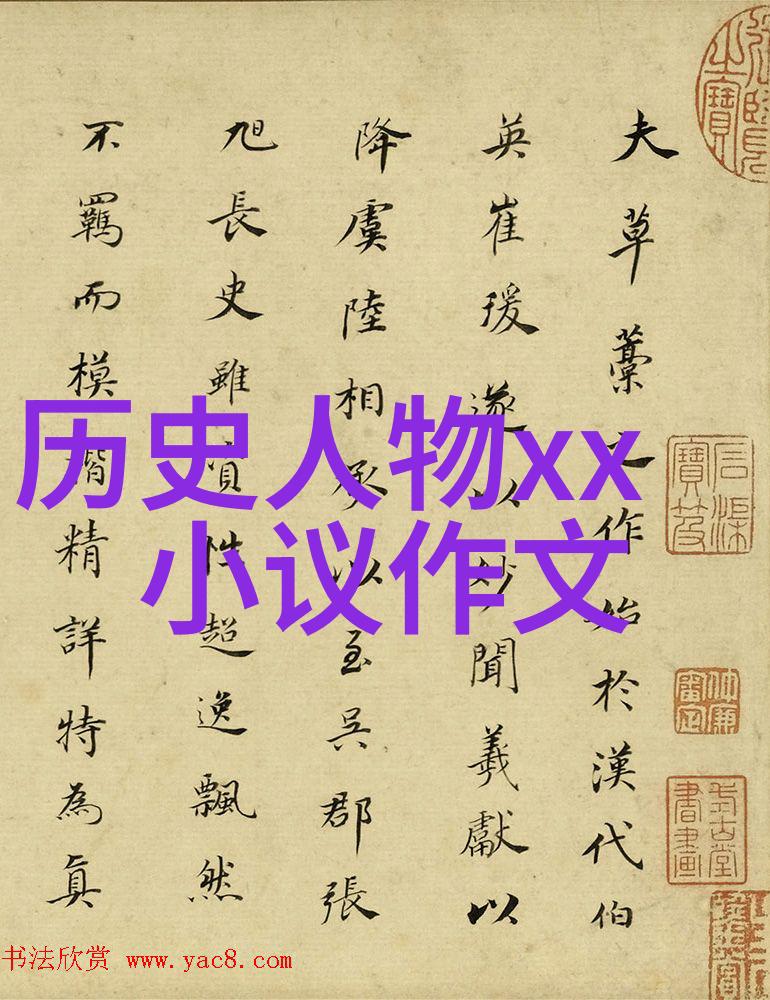 夫草藁之作始於漢代伯
英崔瑗遂以妙聞羲獻以
降虞陸相承以至吳郡張
旭長史雖資性超逸飄然
不羈而模楷精詳特為真
历史人物xx
小议作文
石渠
寶笈
书法欣赏 www.yac8.com